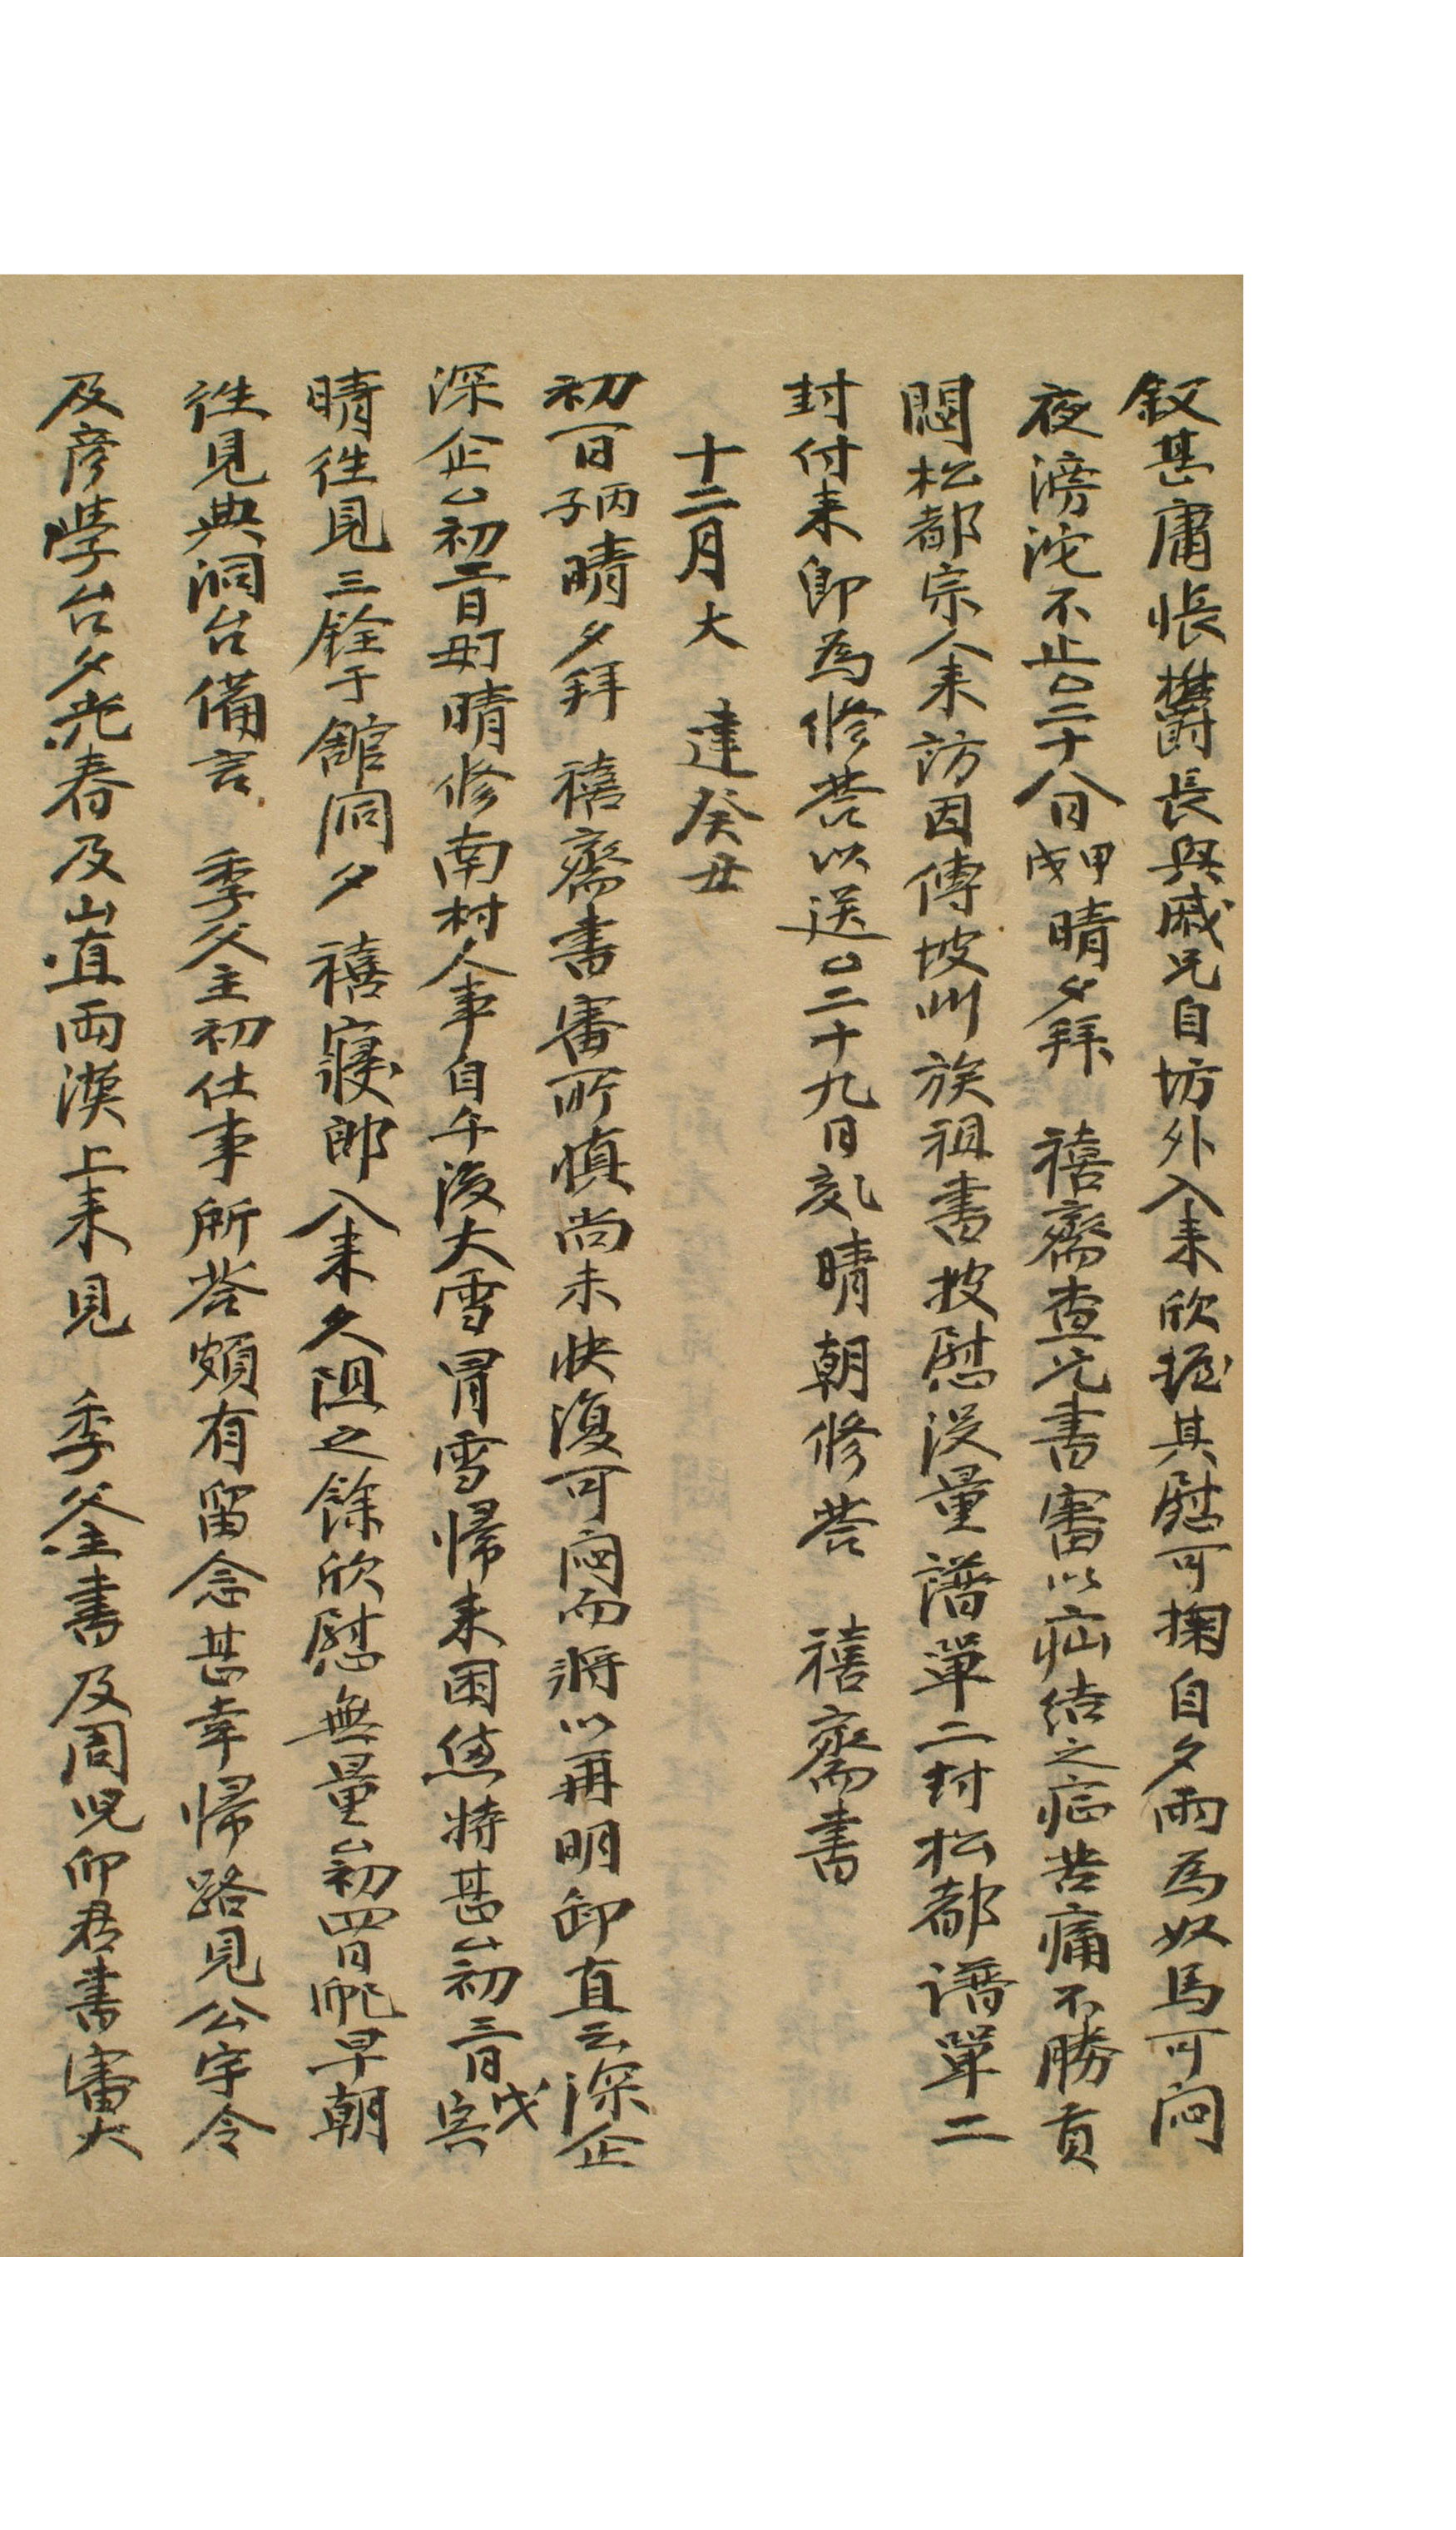 叙甚庸悵欝長與戚兄自坊外入来欣握其慰可掬自夕雨為奴馬可悶
夜滂沱不止二十八日甲戌晴夕拜 禧齋查兄書審以疝結之症苦痛不勝貢
悶松都宗人来訪因傳坡州族祖書披慰没量譜單二封松都譜單二
封付来即為修荅以送二十九日乙亥晴朝修荅 禧齋書
十二月大 建癸丑
初一日丙子晴夕拜 禧齋書審所愼尚未快復可悶而將以再明卸直云深企
深企初二日丁丑晴修南村人事自午後大雪冒雪歸来困憊特甚初三日戊寅
晴徃見三銓于舘洞夕 禧寢郎入来久阻之餘欣慰無量初四日己卯早朝
徃見典洞台備言 季父主初仕事所荅頗有留念甚幸歸路見公宇令
及彦學台夕光春及山直両漢上来見 季父主書及周児仰君書審大